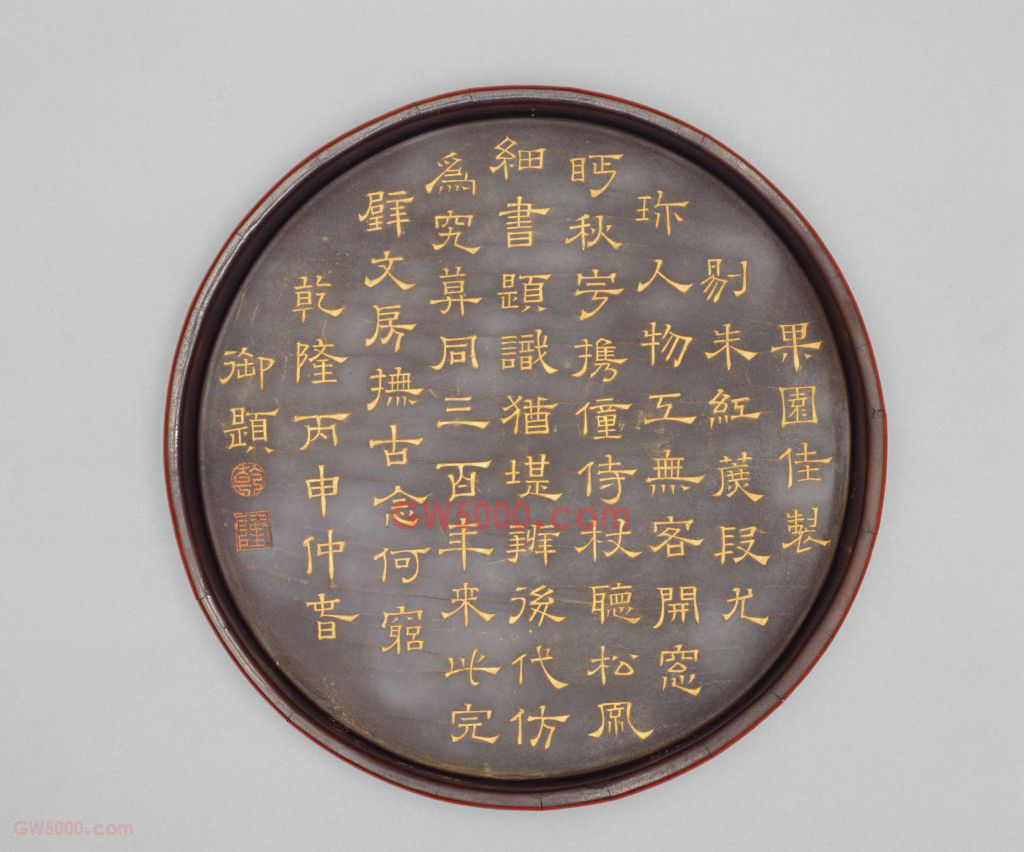 果園佳製
剔朱紅蔗段尤
珎人物工無客開窓
眄秋宇携僮侍杖聽松風
細書題識猶堪辨後代仿
爲究莫同三百年来此完
璧文房撫古念何窮
乾隆丙申仲春
御題
乾
隆
GW5000.com
GW5000.com